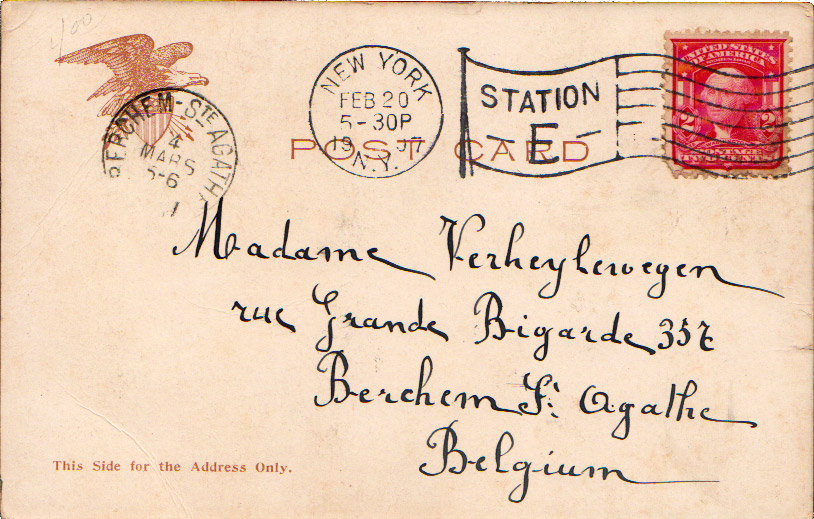 1/00
BERCHEM-STE AGATHE
4
MARS
5-6
NEW YORK
FEB 20
5-30P
1907
N.Y.
STATION
E
UNITED STATES
OF AMERICA
2 2
POSTAGE
TWO CENTS
POST CARD
Madame Verheylewegen
rue Grande Bigarde 357
Berchem St. Agathe
Belgium
This Side for the Address Only.